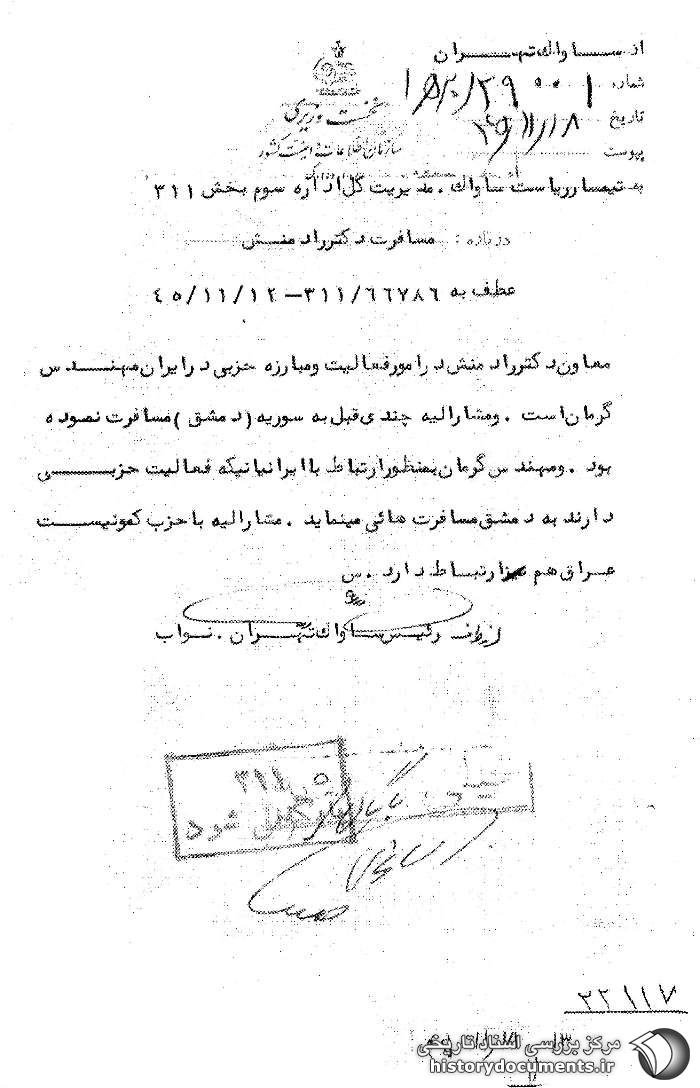 از ساواک تهران
شماره
نخست وزیری
تاریخ ۴۵/۱۱/۱۸
سازمان اطلاعات و امنیت کشور
پیوست
به تیمسار ریاست ساواک . مدیریت کل اداره سوم بخش ۳۱۱
درباره : مسافرت دکتر راد منش
عطف به ۳۱۱/۶۶۷۸۶ – ۴۵/۱۱/۱۲
معاون دکتر راد منش در امور فعالیت و مبارزه حزبی در ایران مهندس
گرمان است . و مشارالیه چندی قبل به سوریه (دمشق) مسافرت نموده
بود . و مهندس گرمان بمنظور ارتباط با ایرانیانیکه فعالیت حزبی
دارند به دمشق مسافرت هائی مینماید . مشارالیه با حزب کمونیست
عراق هم ارتباط دارد . س
از طرف رئیس ساواک تهران . نواب
۳۱۱
شود
۲۲۱۱۷
مرکز بررسی اسناد تاریخی
historydocuments.ir